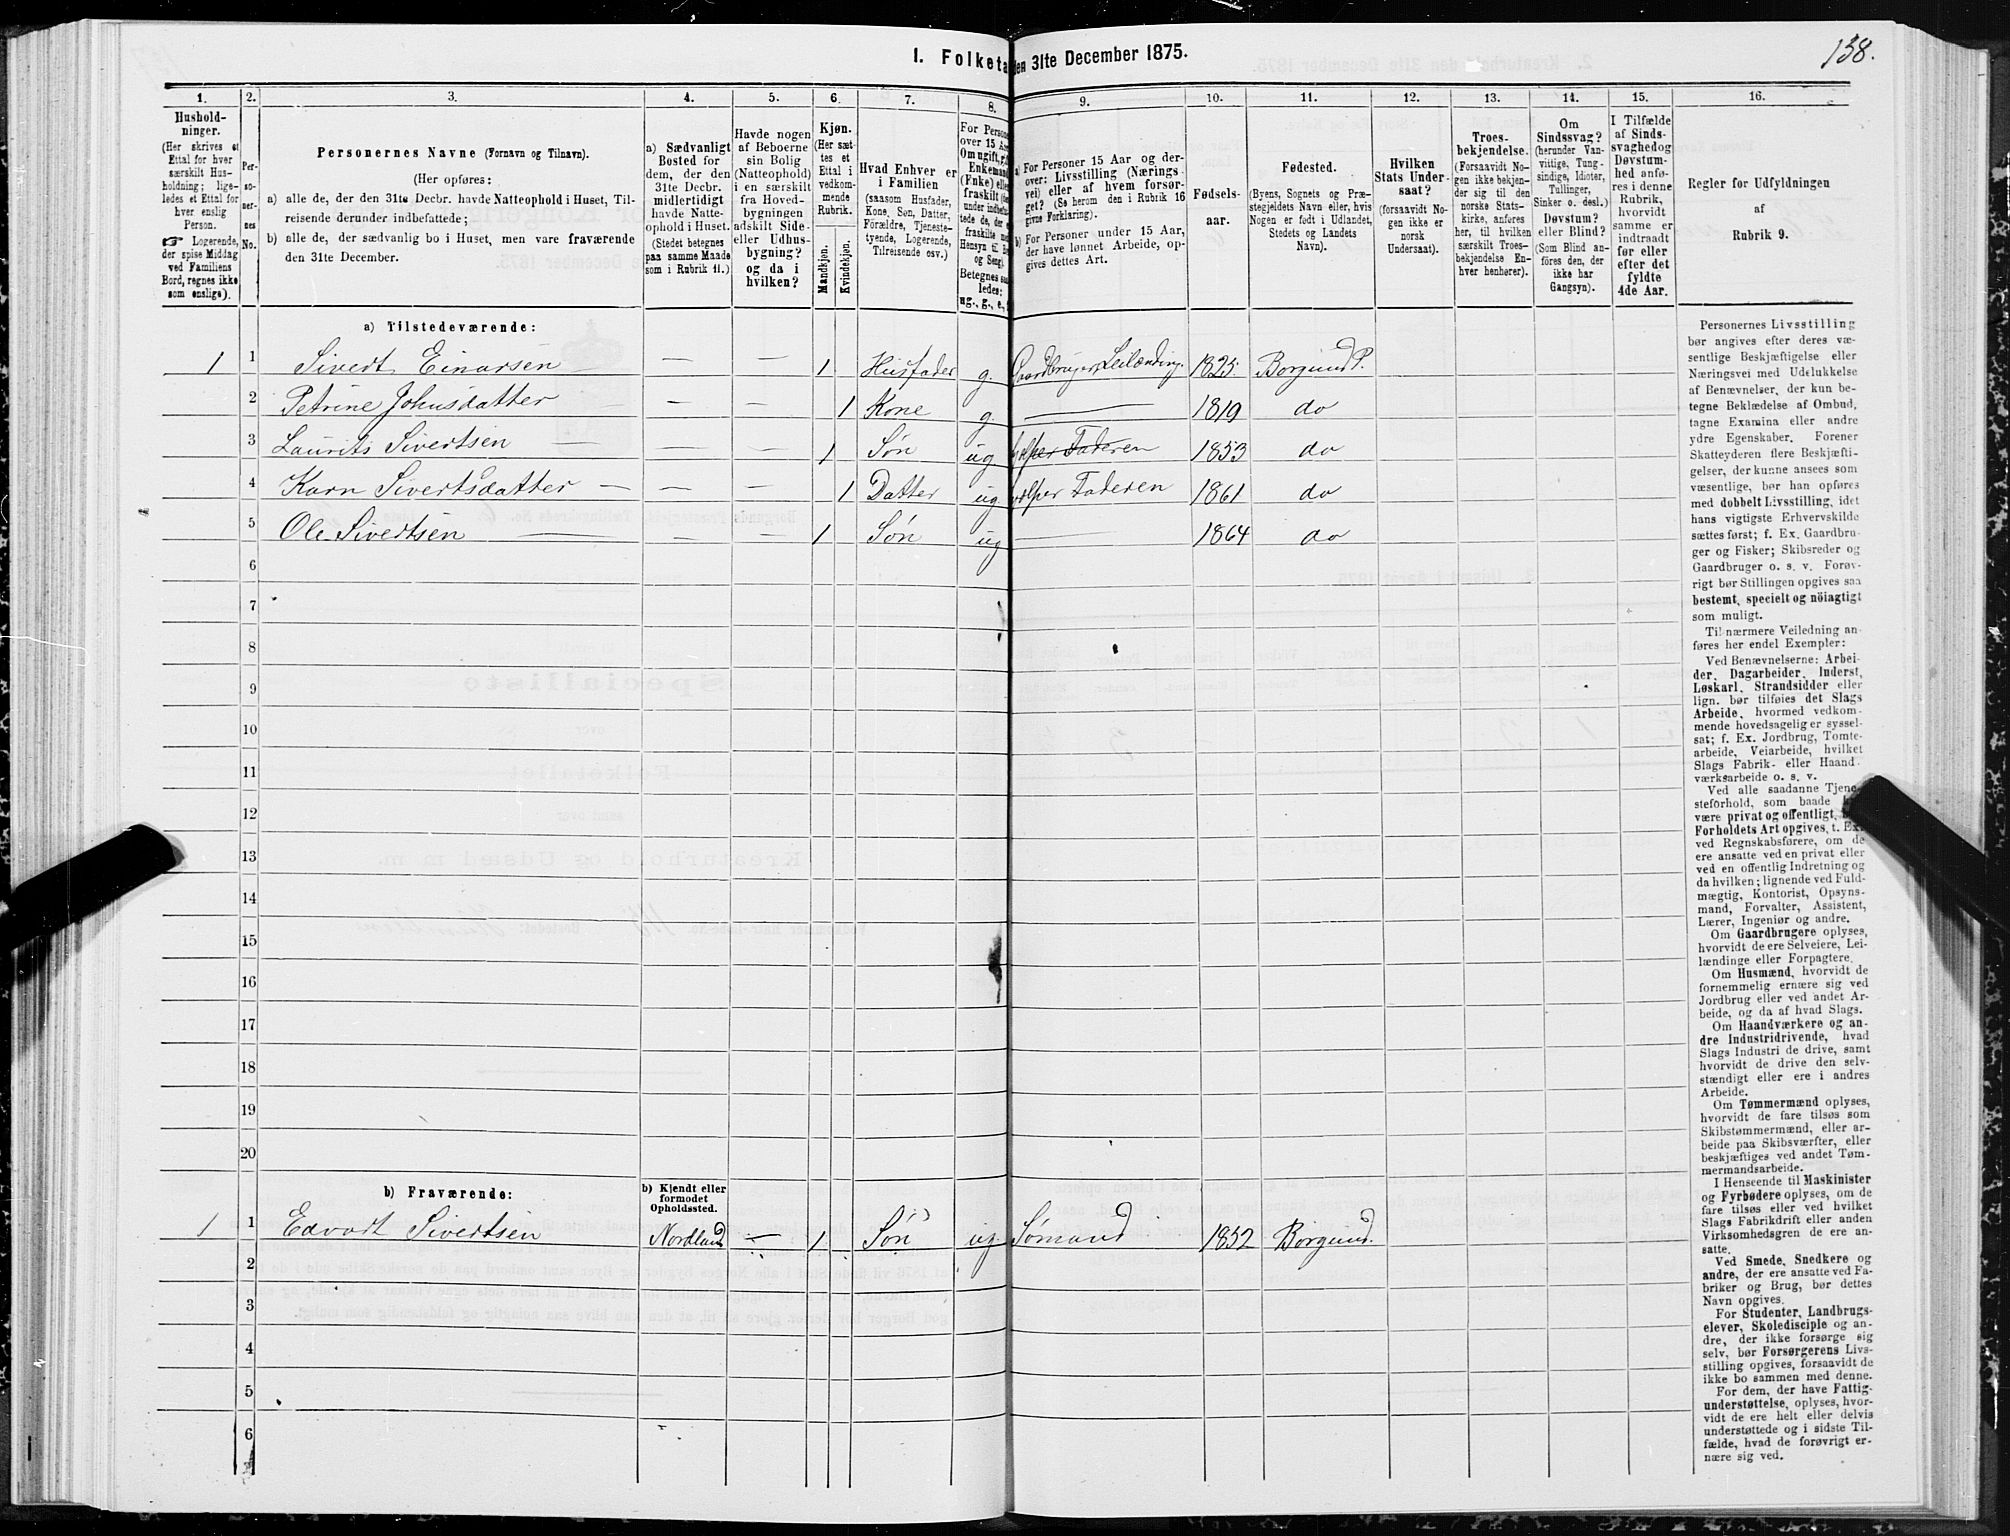 158.
1. Folketa
den 31te December 1875.
1.
2.
3.
4.
5.
6.
7.
8.
9.
10.
11.
12.
13.
14.
15.
16.
Hushold-
ninger.
(Her skrives et
Ettal for hver
særskilt Hus-
holdning; lige-
ledes et Ettal for
hver enslig
Person.
☞ Logerende,
der spise Middag
ved Familiens
Bord, regnes ikke
som enslige).
Per-
so-
ner-
nes
No.
Personernes Navne (Fornavn og Tilnavn).
(Her opføres:
a) alle de, der den 31te Decbr. havde Natteophold i Huset, Til-
reisende derunder indbefattede;
b) alle de, der sædvanlig bo i Huset, men vare fraværende
den 31te December.
a) Sædvanligt
Bosted for
dem, der den
31te Decbr.
midlertidigt
havde Natte-
ophold i Huset.
(Stedet betegnes
paa samme Maade
som i Rubrik 11.)
Havde nogen
af Beboerne
sin Bolig
(Natteophold)
i en særskilt
fra Hoved-
bygningen
adskilt Side-
eller Udhus-
bygning?
og da i
hvilken?
Kjøn.
(Her sæt-
tes et
Ettal i
vedkom-
mende
Rubrik.
Mandkjøn.
Kvindekjøn.
Hvad Enhver er
i Familien
(saasom Husfader,
Kone, Søn, Datter,
Forældre, Tjeneste-
tyende, Logerende,
Tilreisende osv.)
For Persone
over 15 Aar
Om ugift, g
Enkemand
(Enke) elle
fraskilt
under indbe
tede de, der
fraskilte m
Hensyn til B
og Seng).
Betegnes saa
ledes:
ug., g., e.,
a) For Personer 15 Aar og der-
over: Livsstilling (Nærings-
vei) eller af hvem forsør-
get? (Se herom den i Rubrik 16
givne Forklaring).
b) For Personer under 15 Aar,
der have lønnet Arbeide, op-
gives dettes Art.
Fødsels-
aar.
Fødested.
(Byens, Sognets og Præ-
stegjeldets Navn eller, hvis
Nogen er født i Udlandet,
Stedets og Landets
Navn).
Hvilken
Stats Under-
saat?
(forsaavidt No-
gen ikke er
norsk
Undersaat).
Troes-
bekjendelse.
(Forsaavidt No-
gen ikke bekjen-
der sig til den
norske Stats-
kirke, anføres
her, til hvilken
særskilt Troes-
bekjendelse En-
hver henhører).
Om
Sindssvag?
(herunder Van-
vittige, Tung-
sindige, Idioter,
Tullinger,
Sinker o. desl.)
Døvstum?
eller Blind?
(Som Blind an-
føres den, der
ikke har
Gangsyn).
I Tilfælde
af Sinds-
svaghed og
Døvstum-
hed anfø-
res i denne
Rubrik,
hvorvidt
samme er
indtraadt
før eller
efter det
fyldte
4de Aar.
Regler for Udfyldningen
af
Rubrik 9.
a) Tilstedeværende:
1 1 Sivert Einarsen — — 1 Husfader g. Gaardbruger, Leilænding. 1825. Borgund P.
2 Petrine Johnsdatter — — 1 Kone g. — 1819 do
3 Laurits Sivertsen — — — 1 Søn ug hjælper Faderen 1853 do
4 Karn Sivertsdatter — — — 1 Datter ug hjælper Faderen 1861 do
5 Ole Sivertsen — — — 1 Søn ug — 1864 do
6
7
8
9
10
11
12
13
14
15
16
17
18
19
20
b) Fraværende:
b) Kjendt eller
formodet
Opholdssted.
1 1 Edvart Sivertsen Nordland — 1 Søn ug. Sømand 1852 Borgund.
2
3
4
5
6
Personernes Livsstilling
bør angives efter deres væ-
sentlige Beskjæftigelse eller
Næringsvei med Udelukkelse
af Benævnelser, der kun be-
tegne Beklædelse af Ombud,
tagne Examina eller andre
ydre Egenskaber. Forener
Skatteyderen flere Beskjæfti-
gelser, der kunne ansees som
væsentlige, bør han opføres
med dobbelt Livsstilling, idet
hans vigtigste Erhvervskilde
sættes først; f. Ex. Gaardbru-
ger og Fisker; Skibsreder og
Gaardbruger o. s. v. Forøv-
rigt bør Stillingen opgives saa
bestemt, specielt og nöiagtigt
som muligt.
Til nærmere Veiledning an-
føres her endel Exempler:
Ved Benævnelserne: Arbei-
der, Dagarbeider, Inderst,
Løskarl, Strandsidder eller
lign. bør tilføies det Slags
Arbeide, hvormed vedkom-
mende hovedsagelig er syssel-
sat; f. Ex. Jordbrug, Tomte-
arbeide, Veiarbeide, hvilket
Slags Fabrik- eller Haand-
værksarbeide o. s. v.
Ved alle saadanne Tjene-
steforhold, som baade
være privat og offentligt,
Forholdets Art opgives, t. Ex.
ved Regnskabsførere, om de
ere ansatte ved en privat eller
ved en offentlig Indretning og
da hvilken; lignende ved Fuld-
mægtig, Kontorist, Opsyns-
mand, Forvalter, Assistent,
Lærer, Ingeniør og andre.
Om Gaardbrugere oplyses,
hvorvidt de ere Selveiere, Lei-
lændinge eller Forpagtere.
Om Husmænd, hvorvidt de
fornemmelig ernære sig ved
Jordbrug eller ved andet Ar-
beide, og da af hvad Slags.
Om Haandværkere og an-
dre Industridrivende, hvad
Slags Industri de drive, samt
hvorvidt de drive den selv-
stændigt eller ere i andres
Arbeide.
Om Tømmermænd oplyses,
hvorvidt de fare tilsøs som
Skibstømmermænd, eller ar-
beide paa Skibsværfter, eller
beskjæftiges ved andet Tøm-
mermandsarbeide.
I Henseende til Maskinister
og Fyrbødere oplyses, om de
fare tilsøs eller ved hvilket
Slags Fabrikdrift eller anden
Virksomhedsgren de ere an-
satte.
Ved Smede, Snedkere og
andre, der ere ansatte ved Fa-
briker og Brug, bør dettes
Navn opgives.
For Studenter, Landbrugs-
elever, Skoledisciple og an-
dre, der ikke forsørge sig
selv, bør Forsørgerens Livs-
stilling opgives, forsaavidt de
ikke bo sammen med denne.
For dem, der have Fattig-
understøttelse, oplyses, hvor-
vidt de ere helt eller delvis
understøttede og i sidste Til-
fælde, hvad de forøvrigt er-
nære sig ved.